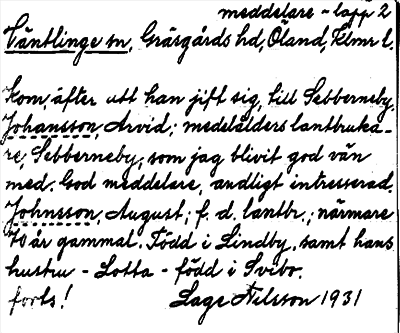 meddelare - lapp 2
Ventlinge sn, Gräsgårds hd, Öland, Klmr l.
Kom, äfter att han jift sig, till Sebberneby.
Johansson, Arvid; medelålders lantbruka-
re, Sebberneby, som jag blivit god vän
med. God meddelare, andligt intresserad.
Johnsson, August; f. d. lantbr.; närmare
70 år gammal. Född i Lindby, samt hans
hustru - Lotta - född i Svibo.
forts! Lage Nilsson 1931